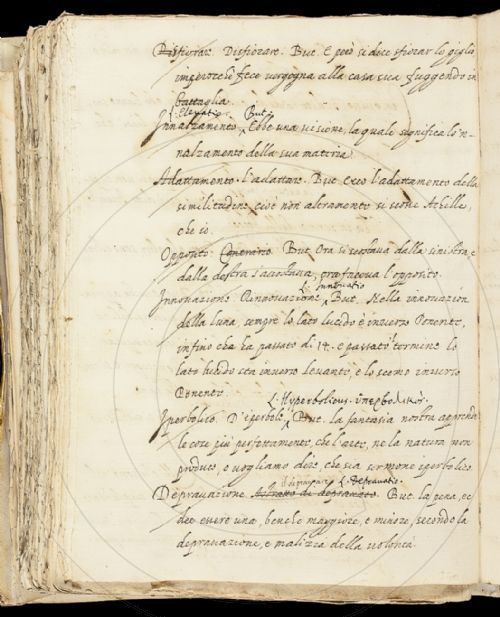 Disfiorar. Disfiorare. But. E però si dice sfiorar lo giglio
imperocchè fece vergogna alla casa sua fuggendo in
battaglia.
L. Elevatio. But.
Innalzamento. Ebbe una visione, la quale significa lo 'n-
nalzamento della sua materia
Adattamento. l'adattare. But. Ecco l'adattamento della
similitudine, cioè non altramento si scosse Achille,
che io.
Opposito. Contrario. But. Ora si scostava dalla sinistra, e
dalla destra s'accostava, ora faceva l'opposito.
L. Innovatio
Innovazione. Rinnovazione. But. Nella innovazion
della luna, sempre lo lato lucido è inverso Ponente,
infino che ha passato di 14. e passato 'l termine lo
lato lucido sta inverso levante, e lo scemo inverso
Ponente.
L. Hyperbolicus. ὑπερβολικός.
Iperbolico. D'iperbole. But. la fantasia nostra apprende
le cose più perfettamente, che l'arte, ne la natura non
produce, e vogliamo dire, che sia sermone iperbolico.
Il depravare. L. Depravatio.
Depravazione. Astratto di depravato. But. la pena, ec
dee essere una, benche maggiore, e minore, secondo la
depravazione, e malizia della volontà.